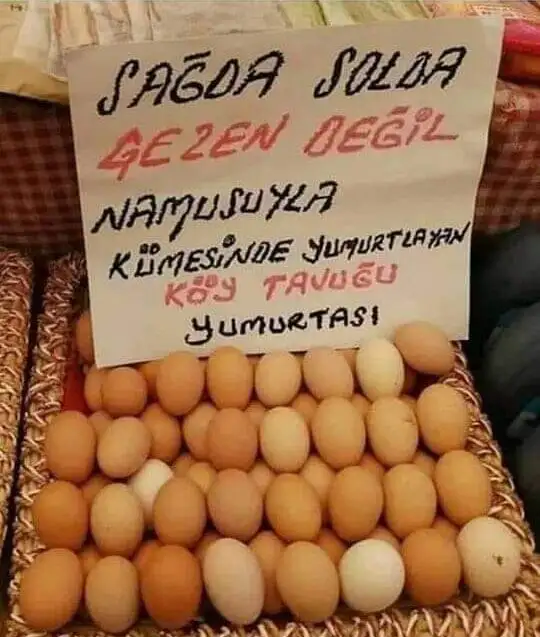 SAĞDA SOLDA
GEZEN DEĞİL
NAMUSUYLA
KÜMESİNDE YUMURTLAYAN
KÖY TAVUĞU
YUMURTASI